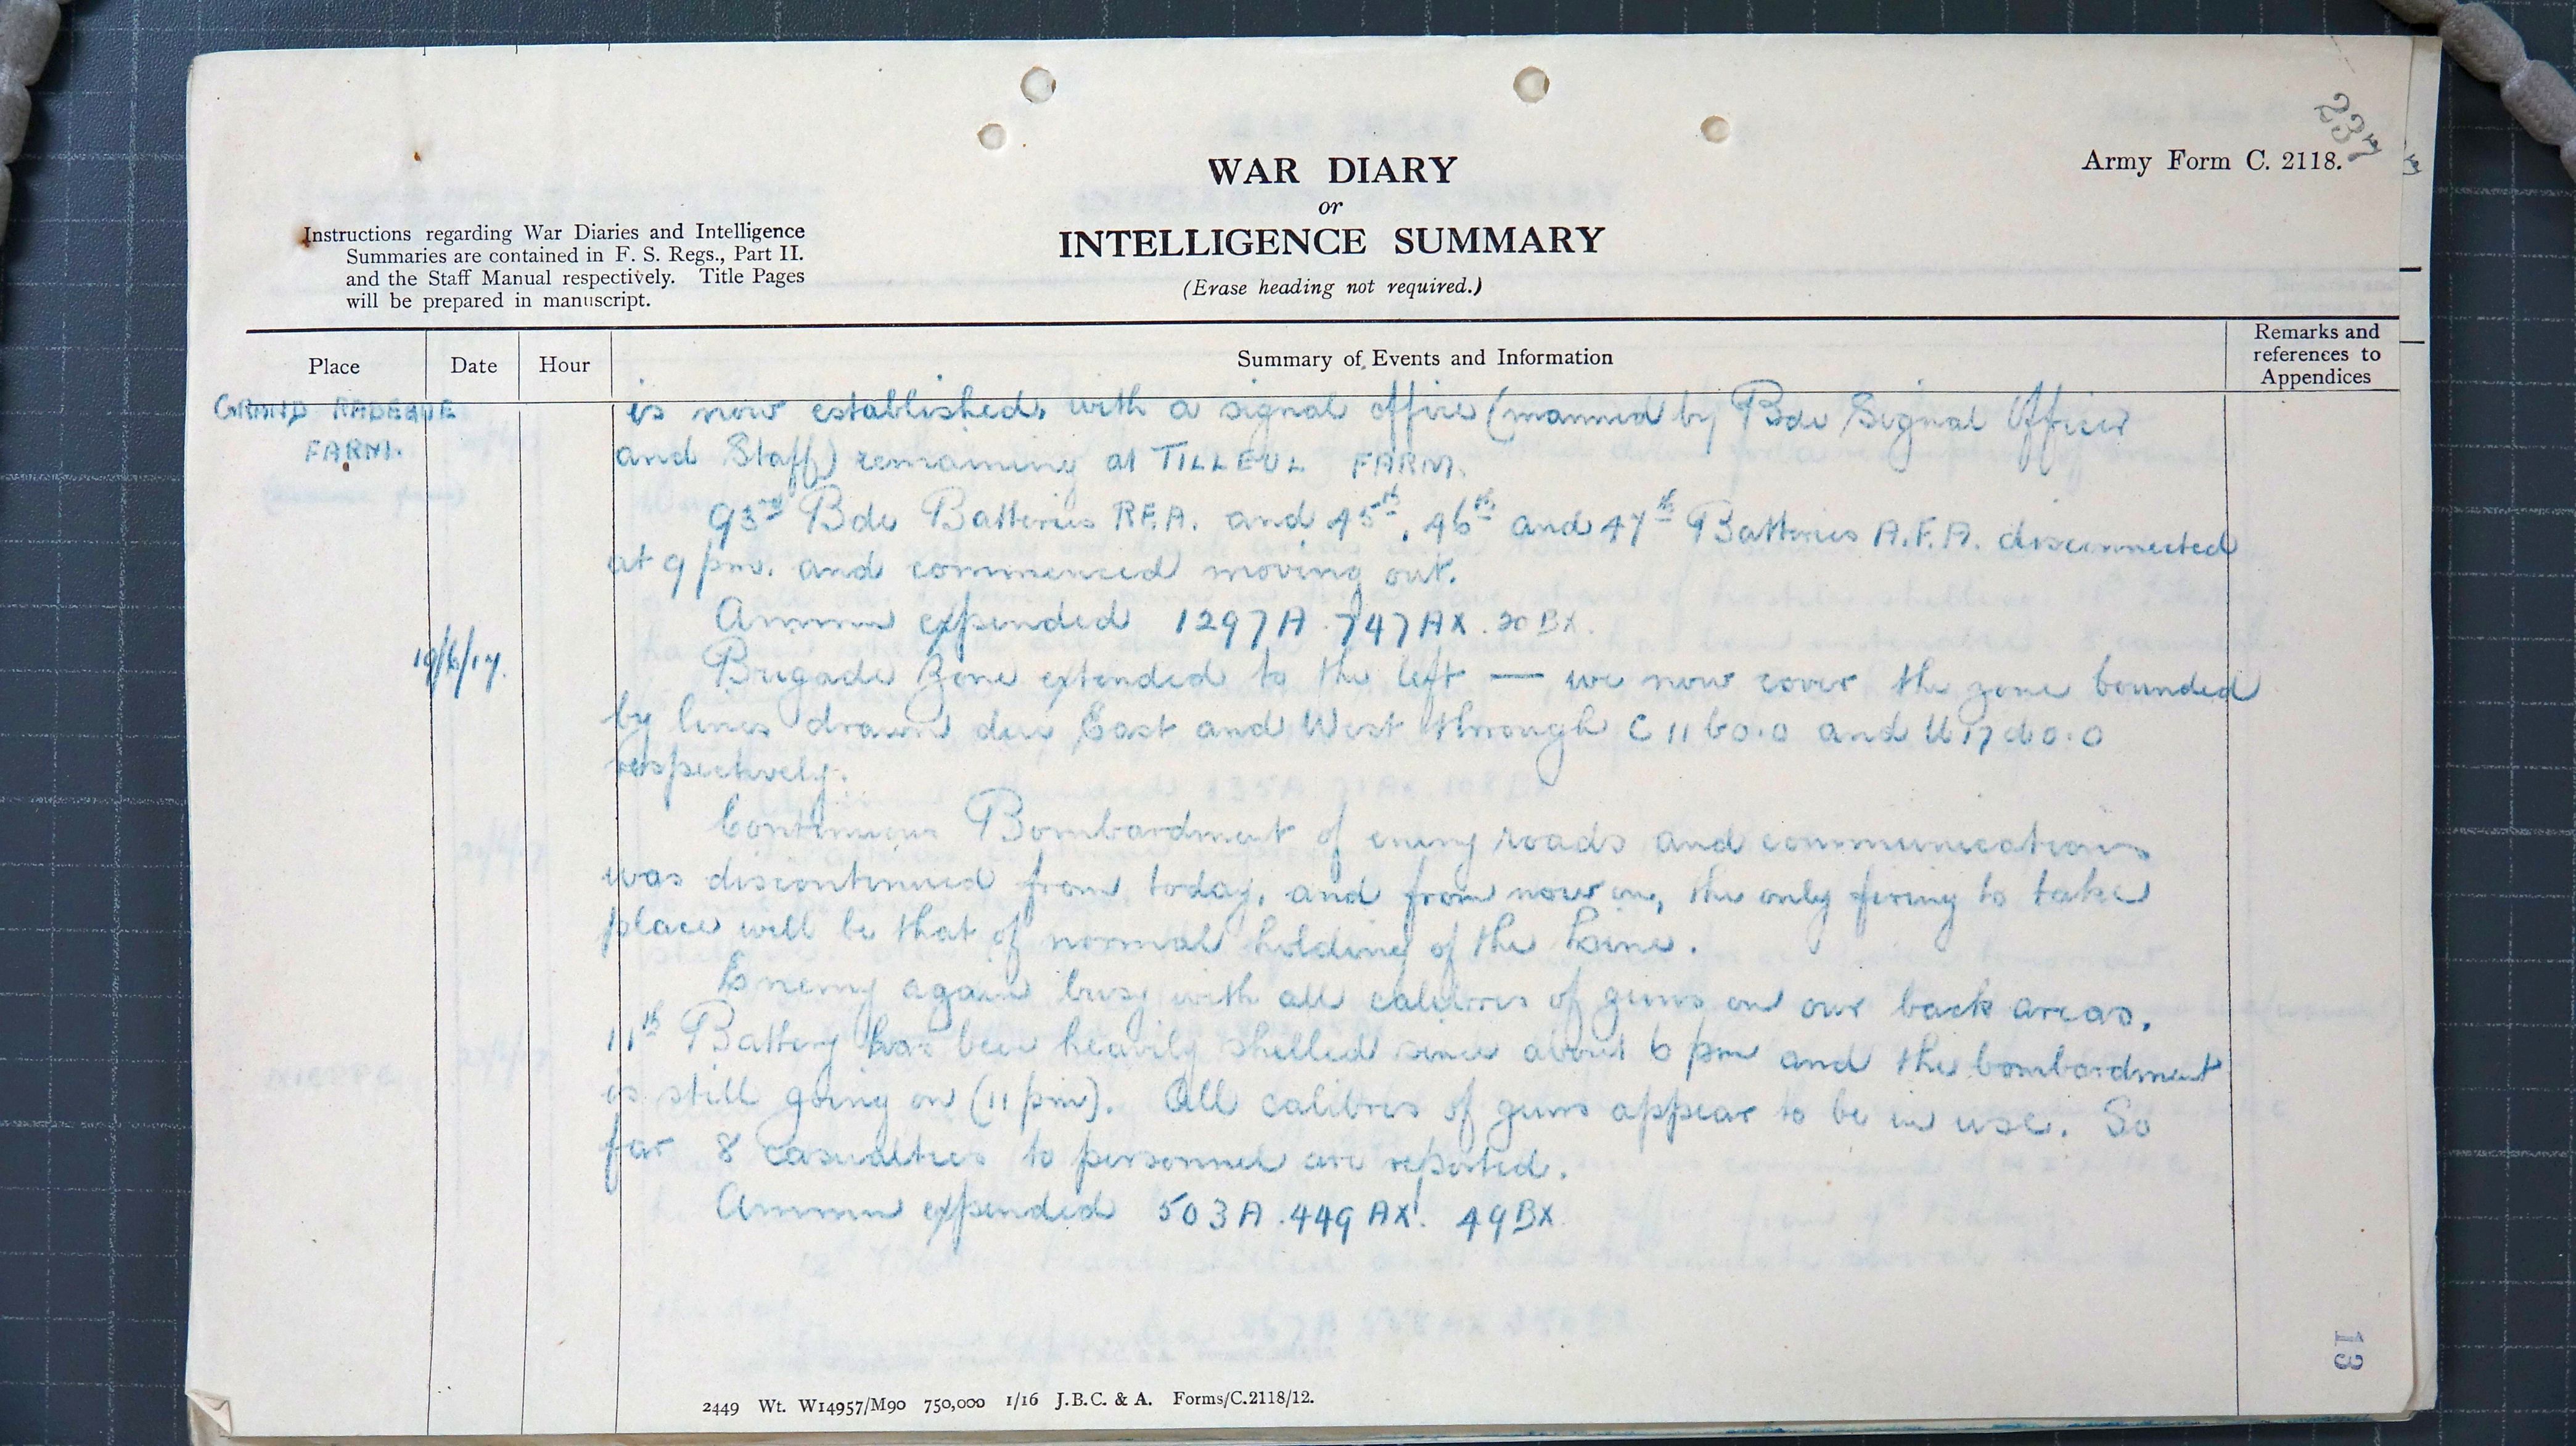 237
Army Form C. 2118.
WAR DIARY
or
INTELLIGENCE SUMMARY
(Erase heading not required.)
Instructions regarding War Diaries and Intelligence
Summaries are contained in F. S. Regs., Part II.
and the Staff Manual respectively. Title Pages
will be prepared in manuscript.
Place Date Hour Summary of Events and Information Remarks and
references to
Appendices
GRAND RABECQUE
FARM.
is now established, with a signal office (manned by Bde Signal Officer
and Staff) remaining at TILLEUL FARM.
93rd Bde Batteries R.F.A. and 45th, 46th and 47th Batteries A.F.A. disconnected
at 9 pm. and commenced moving out.
Ammn expended 1297A. 747AX. 20BX.
19/6/17.
Brigade Zone extended to the left — we now cover the zone bounded
by lines drawn due East and West through C 11 b 0.0 and U 17 d 0.0
respectively.
Continuous Bombardment of enemy roads and communications
was discontinued from today, and from now on, the only firing to take
place will be that of normal holding of the Line.
Enemy again busy with all calibres of guns on our back areas.
11th Battery has been heavily shelled since about 6 pm and the bombardment
is still going on (11 pm). All calibres of guns appear to be in use. So
far 8 casualties to personnel are reported.
Ammn expended 503A. 449AX. 49BX
13
2449 Wt. W14957/M90 750,000 1/16 J.B.C. & A. Forms/C.2118/12.